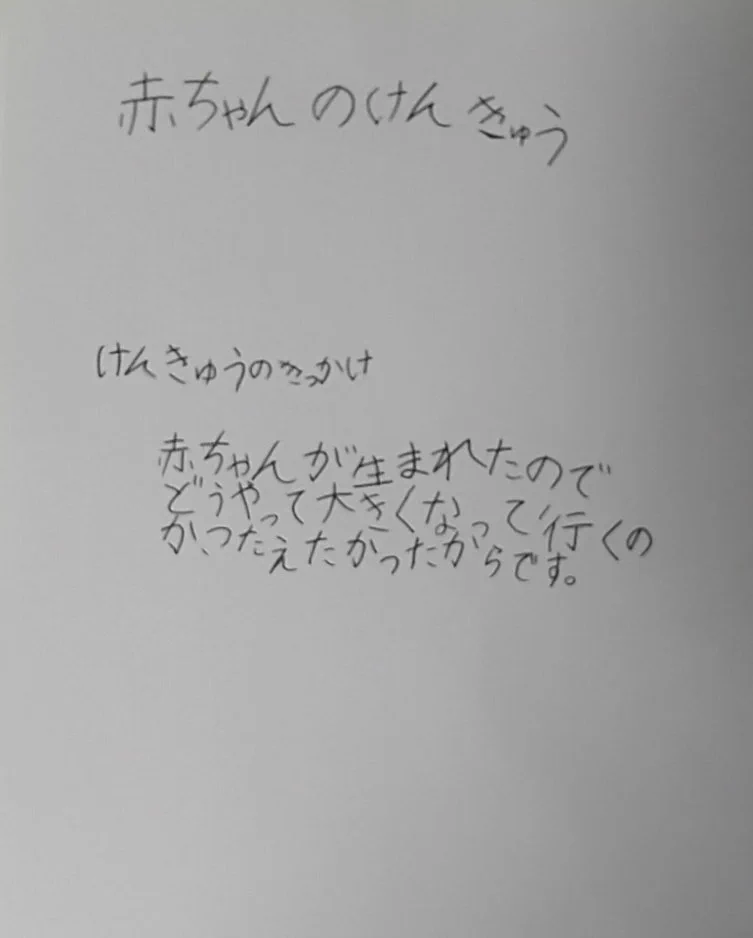 赤ちゃんのけんきゅう
けんきゅうのきっかけ
赤ちゃんが生まれたので
どうやって大きくなって行くの
か、つたえたかったからです。